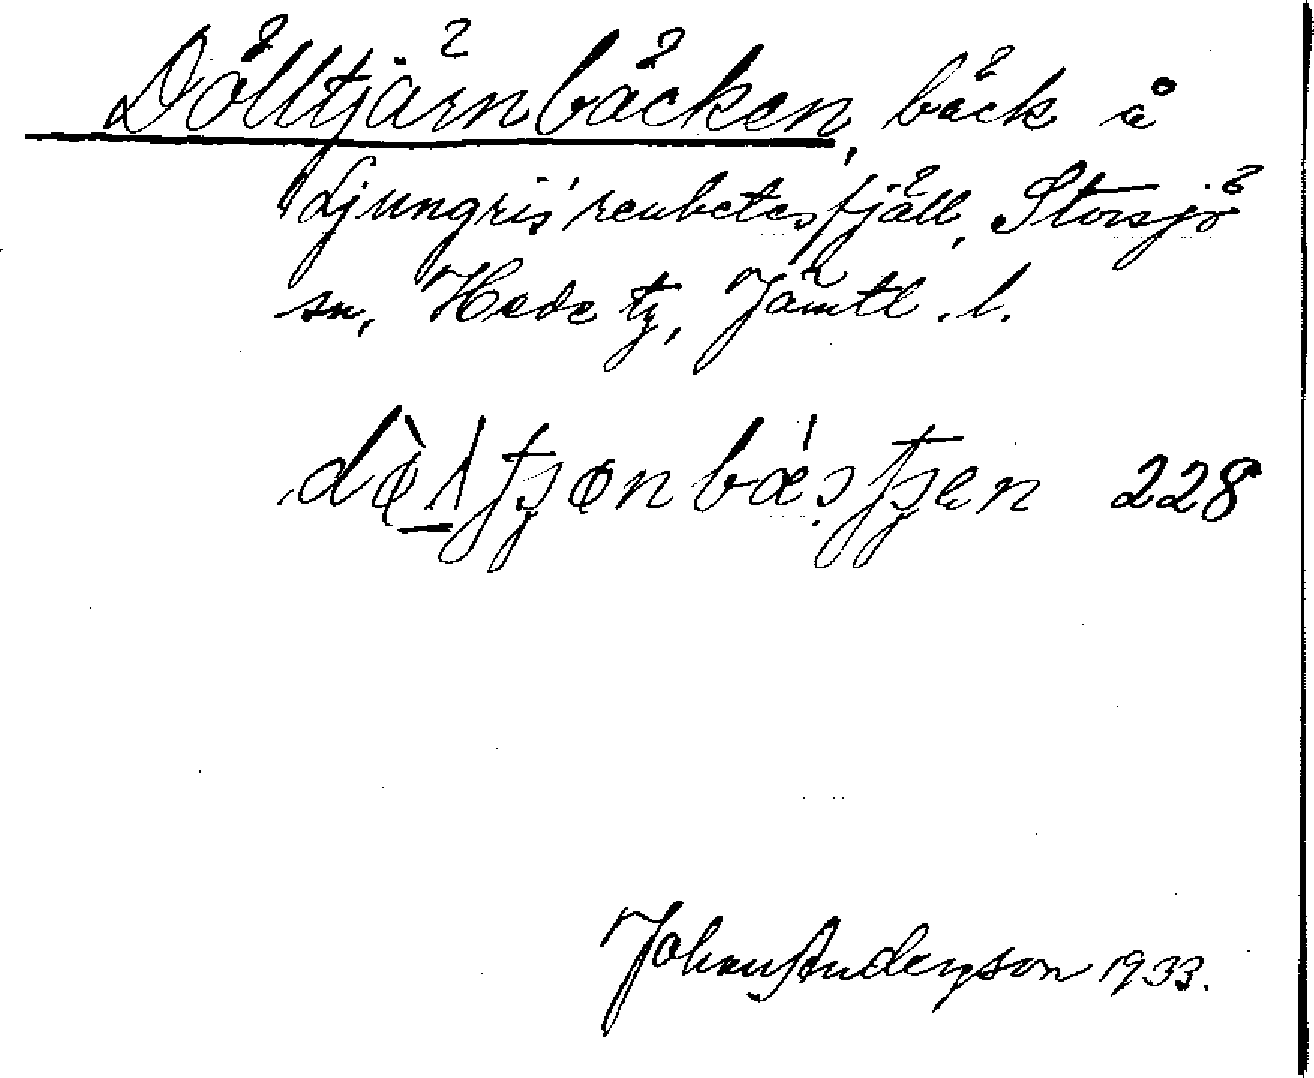 Dölltjärnbäcken, bäck å
Ljungris' renbetesfjäll, Storsjö
sn, Hede tg, Jämtl. l.
228
Johan Anderson 1933.